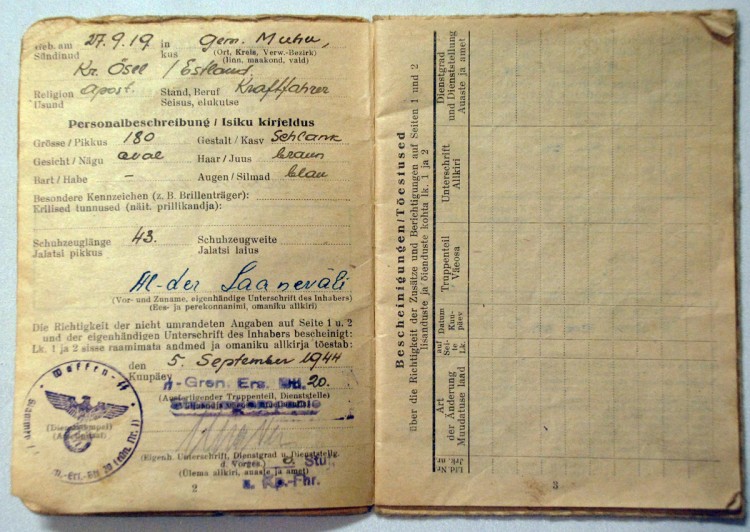 Geb. am 27.9.19 in gem. Muhu,
Sündinud kus (Ort, Kreis, Verw.-Bezirk)
(linn, maakond, vald)
Kr. Ösel / Estland.
Religion apost. Stand, Beruf Kraftfahrer
Usund Seisus, elukutse
Personalbeschreibung / Isiku kirjeldus
Grösse / Pikkus 180 Gestalt / Kasv Schlank
Gesicht / Nägu oval Haar / Juus braun
Bart / Habe - Augen / Silmad blau
Besondere Kennzeichen (z. B. Brillenträger):
Erilised tunnused (näit. prillikandja):
Schuhzeuglänge 43. Schuhzeugweite
Jalatsi pikkus Jalatsi laius
Al-der Laaneväli
(Vor- und Zuname, eigenhändige Unterschrift des Inhabers)
(Ees- ja perekonnanimi, omaniku allkiri)
Die Richtigkeit der nicht umrandeten Angaben auf Seite 1 u. 2
und der eigenhändigen Unterschrift des Inhabers bescheinigt:
Lk. 1 ja 2 sisse raamimata andmed ja omaniku allkirja tõestab:
den 5. September 1944
Kuupäev
Gren. Ers. Btl. 20.
(Ausfertigender Truppenteil, Dienststelle)
Waffen-SS
(Eigenh. Unterschrift, Dienstgrad u. Dienststellg.
d. Vorges.)
(Ülema allkiri, auaste ja amet)
u. Kp.-Fhr.
2
Bescheinigungen/Tõestused
über die Richtigkeit der Zusätze und Berichtigungen auf Seiten 1 und 2
lisanduste ja õienduste kohta lk. 1 ja 2
Lfd Nr
Jrk. nr.
Art
der Änderung
Muudatuse laad
auf
Sei-
te
Lk
Datum
Kuu-
päev
Truppenteil
Väeosa
Unterschrift
Allkiri
Dienstgrad
und Dienststellung
Auaste ja amet
3